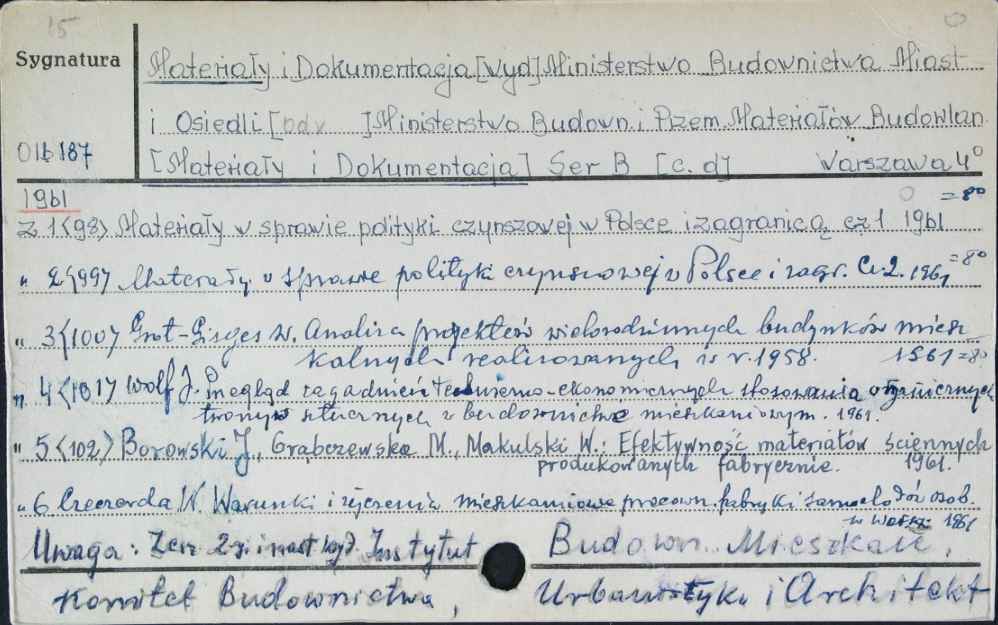 15
Sygnatura
Materiały i Dokumentacja [Wyd] Ministerstwo Budownictwa Miast
i Osiedli [odv ] Ministerstwo Budown. i Przem. Materiałów Budowlan
01b187
[Materiały i Dokumentacja] Ser B [c.d] Warszawa 4°
1961 = 80
Z 1 <98> Materiały w sprawie polityki czynszowej w Polsce i zagranicą cz 1 1961
" 2 <99> Materiały w sprawie polityki czynszowej w Polsce i zagr. Cz. 2. 1961 = 80
" 3 <100> W. Analiza projektów wielorodzinnych budynków miesz
kalnych realizowanych w r. 1958. 1961 = 80
" 4 <101> Wolf J. Przegląd zagadnień techniczno-ekonomicznych stosowania
tworzyw sztucznych w budownictwie mieszkaniowym. 1961.
" 5 <102> Borowski J., Grabczewska M., Makulski W.: Efektywność materiałów ściennych
produkowanych fabrycznie. 1961.
" 6 W. Warunki i życzenia mieszkaniowe pracown. fabryki samochodów osob.
w Warsz 1961
Uwaga: Zesz 2 i nast wyd Instytut Budown. Mieszkan,
Komitet Budownictwa, Urbanistyki i Architekt